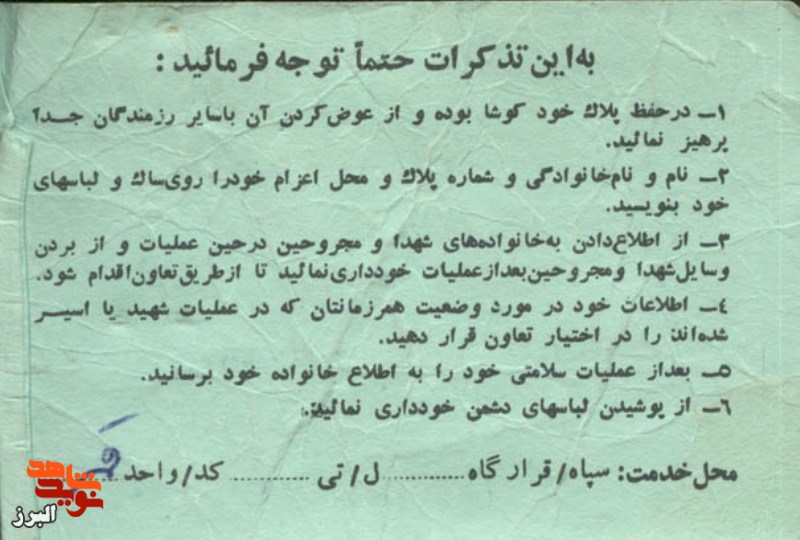 به این تذکرات حتماً توجه فرمائید:
۱ــ در حفظ پلاك خود کوشا بوده و از عوض‌کردن آن باسایر رزمندگان جـداً
پرهیز نمائید.
۲ــ نام و نام‌خانوادگی و شماره پلاك و محل اعزام خودرا روی‌ساك و لباسهای
خود بنویسید.
۳ــ از اطلاع‌دادن به‌خانواده‌های شهدا و مجروحین درحین عملیات و از بردن
وسایل‌شهدا ومجروحین‌بعدازعملیات خودداری‌نمائید تا ازطریق‌تعاون‌اقدام شود.
٤ــ اطلاعات خود در مورد وضعیت همرزمانتان که در عملیات شهید یا اسیــر
شده‌اند را در اختیار تعاون قرار دهید.
۵ــ بعداز عملیات سلامتی خود را به اطلاع خانواده خود برسانید.
٦ــ از پوشیدن لباسهای دشمن خودداری نمائید.
محل‌خدمت: سپاه/قرارگاه.............ل/تی.............کد/واحد
نوید شاهد
البرز